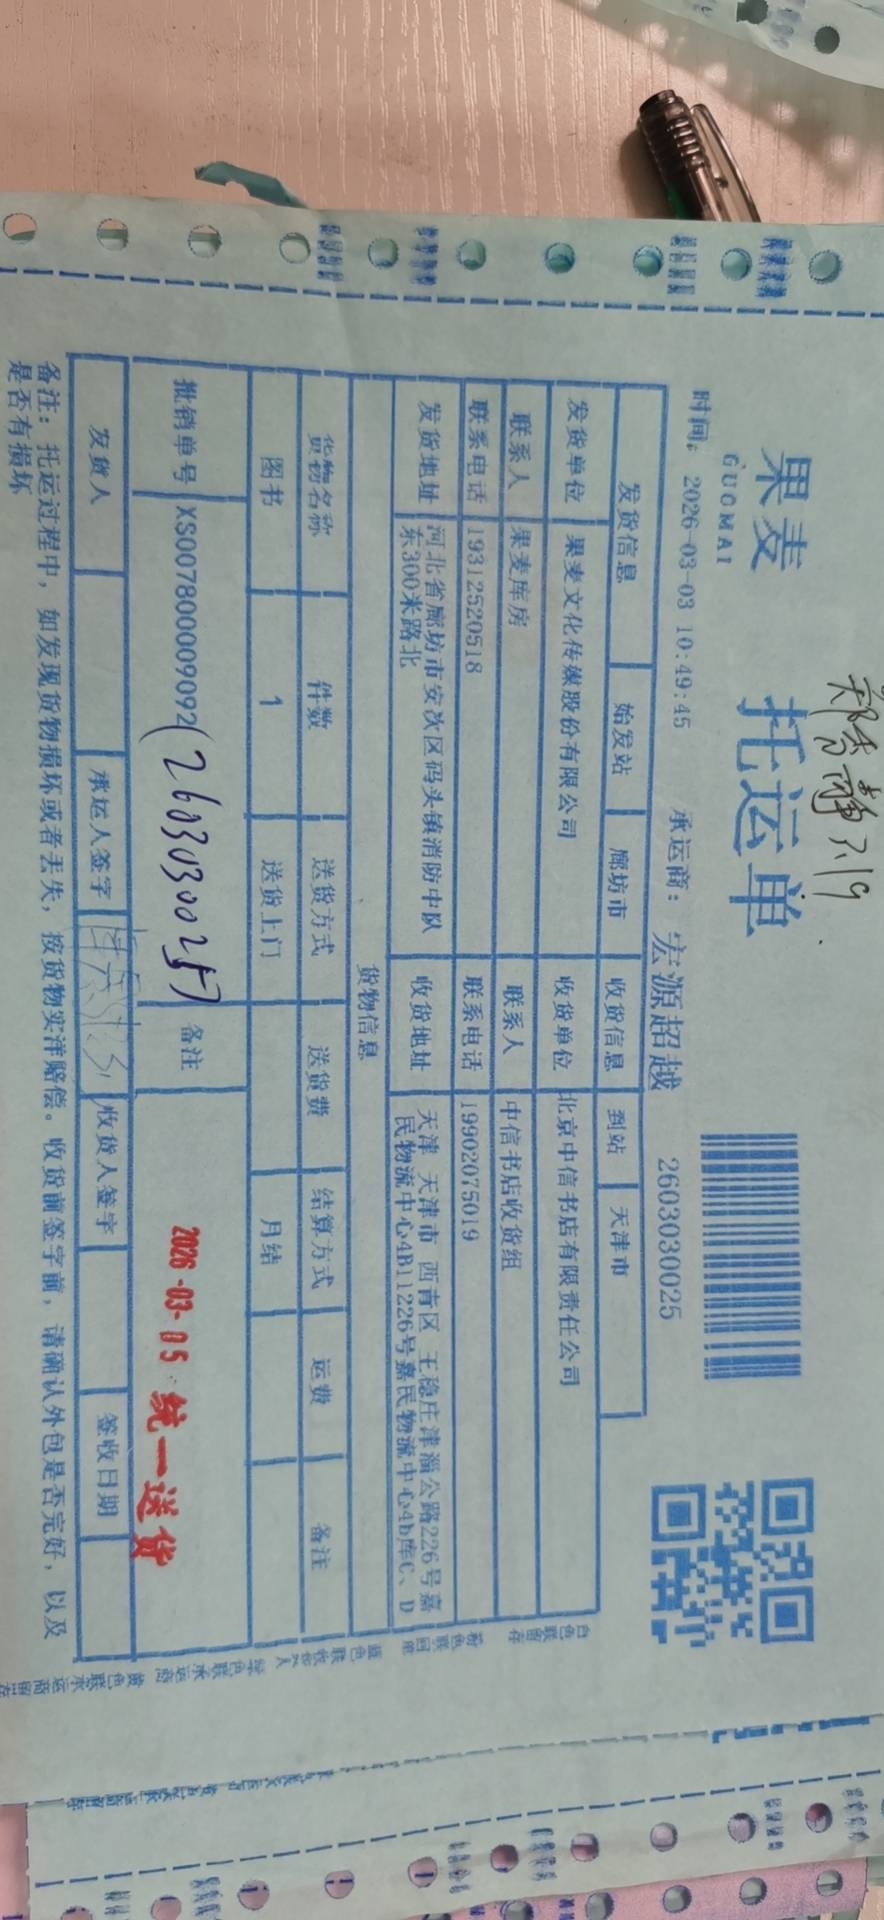 果麦
GUOMAI
托运单
时间: 2026-03-03 10:49:45 承运商: 宏源超越 2603030025
发货信息 始发站 廊坊市 收货信息 到站 天津市
发货单位 果麦文化传媒股份有限公司 收货单位 北京中信书店有限责任公司
联系人 果麦库房 联系人 中信书店收货组
联系电话 19312520518 联系电话 19902075019
发货地址 河北省廊坊市安次区码头镇消防中队东300米路北 收货地址 天津 天津市 西青区 王稳庄津淄公路226号嘉民物流中心4B11226号嘉民物流中心4b库C、D
货物信息
货物名称 件数 送货方式 送货费 结算方式 运费 备注
图书 1 送货上门 月结
批销单号 XS007800009092 备注
2026-03-05 统一送货
发货人 承运人签字 收货人签字 签收日期
备注: 托运过程中, 如发现货物损坏或者丢失, 按货物实洋赔偿。收货前签字前, 请确认外包是否完好, 以及
是否有损坏